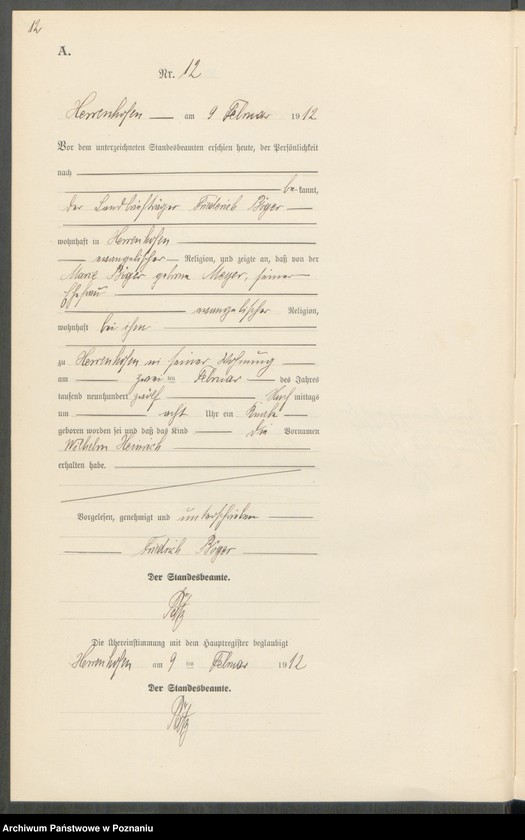 12
A.
Nr. 12
Herrenhofen am 9 Februar 1912
Vor dem unterzeichneten Standesbeamten erschien heute, der Persönlichkeit
nach
be kannt,
der Friedrich Böger
wohnhaft in Herrenhofen
evangelischer Religion, und zeigte an, daß von der
Marie Böger geborne Meyer, seiner
Ehefrau
evangelischer Religion,
wohnhaft bei ihm
zu Herrenhofen in seiner Wohnung
am zwei ten Februar des Jahres
tausend neunhundert zwölf Nach mittags
um acht Uhr ein Knabe
geboren worden sei und daß das Kind die Vornamen
Wilhelm Heinrich
erhalten habe.
Vorgelesen, genehmigt und unterschrieben
Friedrich Böger
Der Standesbeamte.
Die Übereinstimmung mit dem Hauptregister beglaubigt
Herrenhofen am 9 ten Februar 1912
Der Standesbeamte.
Archiwum Państwowe w Poznaniu